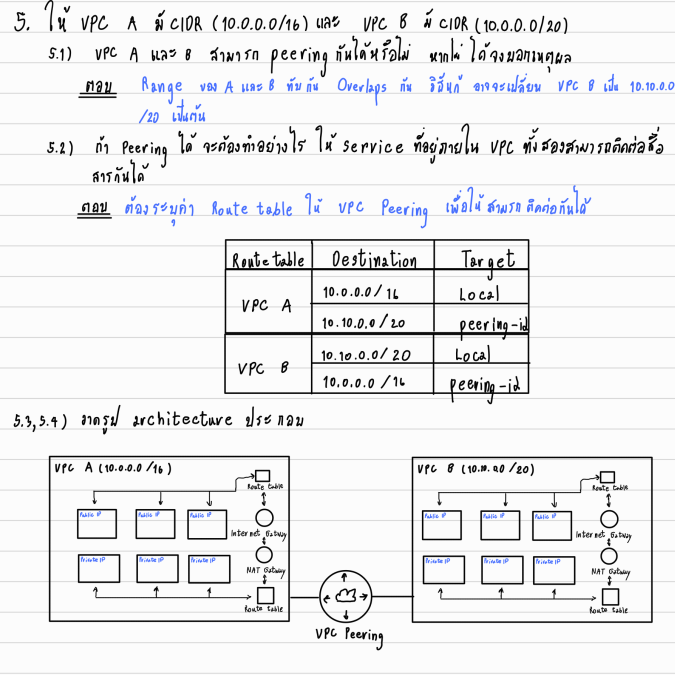 5. ให้ VPC A มี CIDR (10.0.0.0/16) และ VPC B มี CIDR (10.0.0.0/20)
5.1) VPC A และ B สามารถ peering กันได้หรือไม่ หากไม่ได้จงบอกเหตุผล
ตอบ Range ของ A และ B ทับกัน Overlaps กัน วิธีแก้ อาจจะเปลี่ยน VPC B เป็น 10.10.0.0
/20 เป็นต้น
5.2) ถ้า Peering ได้ จะต้องทำอย่างไร ให้ service ที่อยู่ภายใน VPC ทั้งสองสามารถติดต่อสื่อ
สารกันได้
ตอบ ต้องระบุค่า Route table ให้ VPC Peering เพื่อให้สามรถติดต่อกันได้
Route table Destination Target
VPC A
10.0.0.0/16 Local
10.10.0.0/20 peering-id
VPC B
10.10.0.0/20 Local
10.0.0.0/16 peering-id
5.3,5.4) วาดรูป architecture ประกอบ
VPC A (10.0.0.0/16)
Route table
Public IP Public IP Public IP
Internet Gatway
Private IP Private IP Private IP
NAT Gatway
Route table
VPC Peering
VPC B (10.10.0.0/20)
Route table
Public IP Public IP Public IP
Internet Gatway
Private IP Private IP Private IP
NAT Gatway
Route table